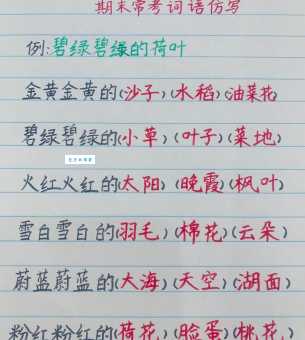 期末常考词语仿写
例:碧绿碧绿的荷叶
金黄金黄的(沙子)(水稻)(油菜花
碧绿碧绿的(小草)(叶子)(菜地)
火红火红的(太阳)(晚霞)(枫叶)
雪白雪白的(羽毛)(棉花)(云朵)
蔚蓝蔚蓝的(大海)(天空)(湖面)
粉红粉红的(荷花)(脸蛋)(桃花)